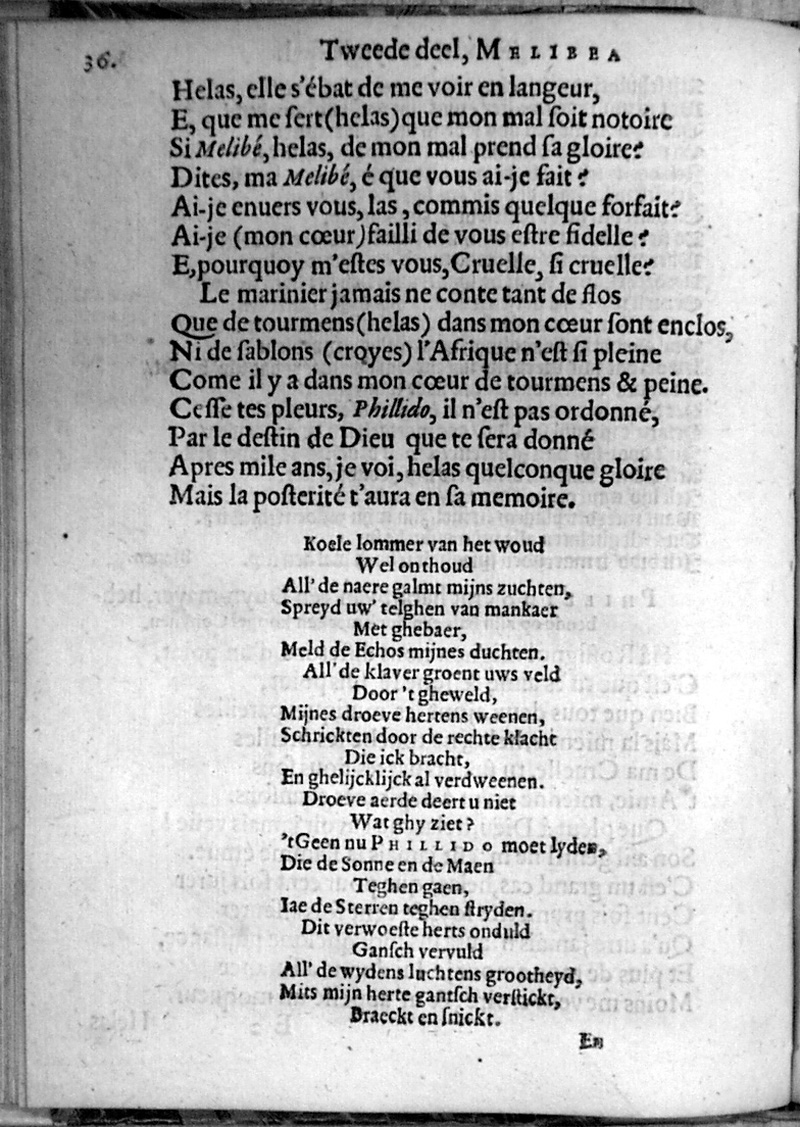 36.
Tweede deel, MELIBEA
Helas, elle s'ébat de me voir en langeur,
E, que me ſert(helas)que mon mal ſoit notoire
Si Melibé, helas, de mon mal prend ſa gloire?
Dites, ma Melibé, é que vous ai-je fait?
Ai-je enuers vous, las, commis quelque forfait?
Ai-je (mon cœur)failli de vous eſtre fidelle?
E, pourquoy m'eſtes vous, Cruelle, ſi cruelle?
Le marinier jamais ne conte tant de flos
Que de tourmens(helas) dans mon cœur ſont enclos,
Ni de ſablons (croyes) l'Afrique n'eſt ſi pleine
Come il y a dans mon cœur de tourmens & peine.
Ceſſe tes pleurs, Phillido, il n'eſt pas ordonné,
Par le deſtin de Dieu que te ſera donné
Apres mile ans, je voi, helas quelconque gloire
Mais la poſterité t'aura en ſa memoire.
Koele lommer van het woud
Wel onthoud
All' de naere galmt mijns zuchten,
Spreyd uw' telghen van mankaer
Met ghebaer,
Meld de Echos mijnes duchten.
All' de klaver groent uws veld
Door 't gheweld,
Mijnes droeve hertens weenen,
Schrickten door de rechte klacht
Die ick bracht,
En ghelijcklijck al verdweenen.
Droeve aerde deert u niet
Wat ghy ziet?
'tGeen nu PHILLIDO moet lyden,
Die de Sonne en de Maen
Teghen gaen,
Iae de Sterren teghen ſtryden.
Dit verwoeſte herts onduld
Ganſch vervuld
All' de wydens luchtens grootheyd,
Mits mijn herte gantſch verſtickt,
Braeckt en ſnickt.
En